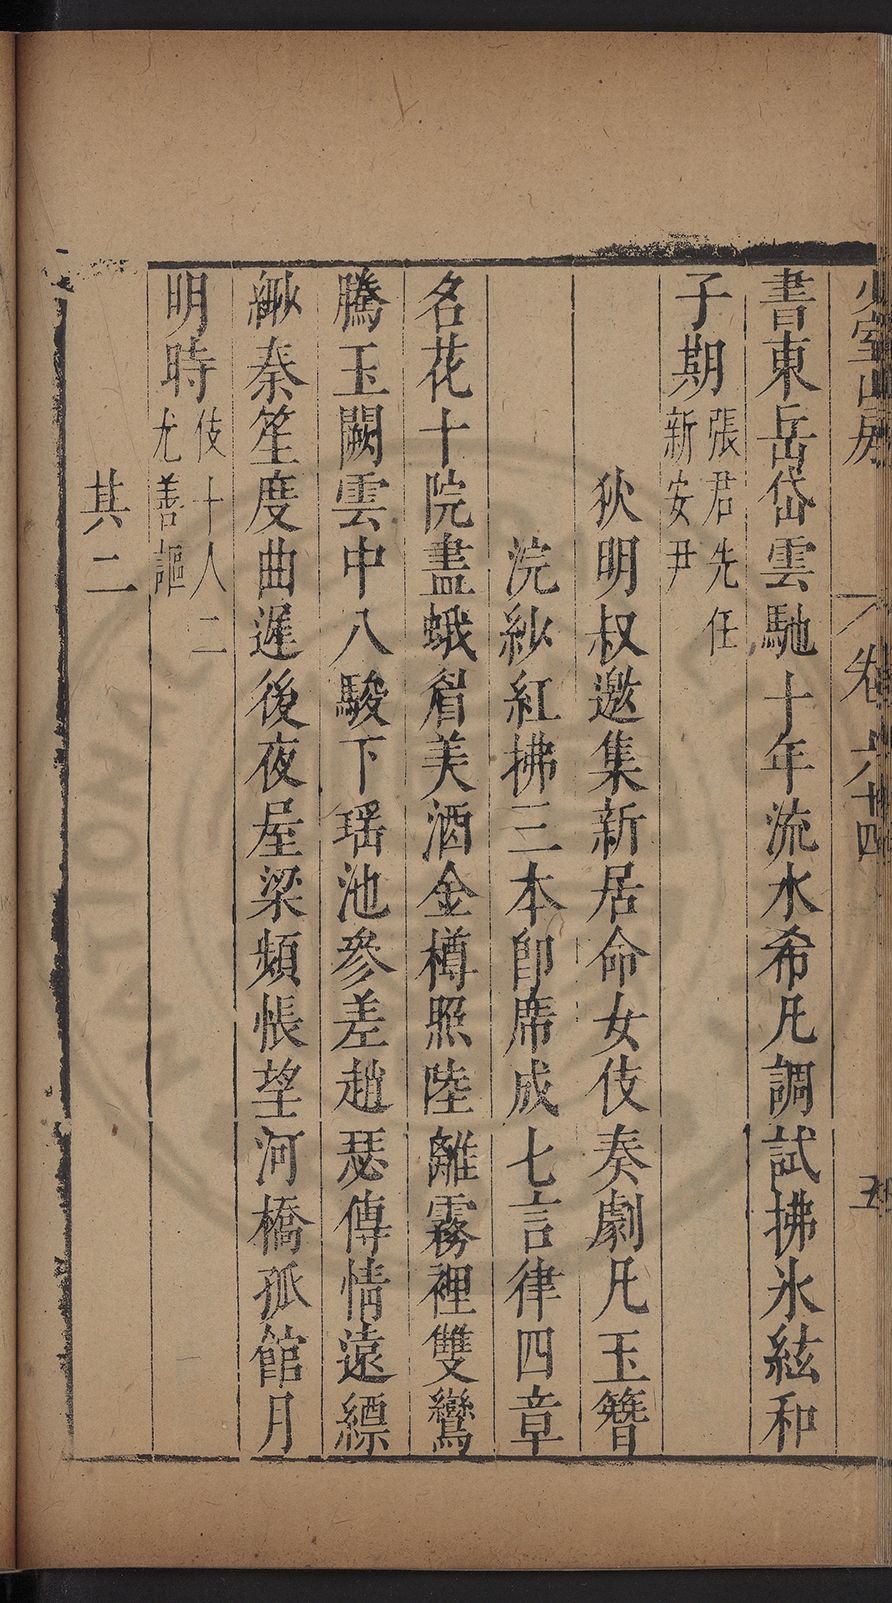 少室山房 卷六十四 五
書東岳岱雲馳十年流水希凡調試拂氷絃和
子期張君先任新安尹
狄明叔邀集新居命女伎奏劇凡玉簪
浣紗紅拂三本卽席成七言律四章
名花十院盡蛾眉美酒金樽照陸離霧裡雙鸞
騰玉闕雲中八駿下瑤池參差趙瑟傳情遠縹
緲秦笙度曲遲後夜屋梁頻悵望河橋孤館月
明時伎十人二尤善謳
其二